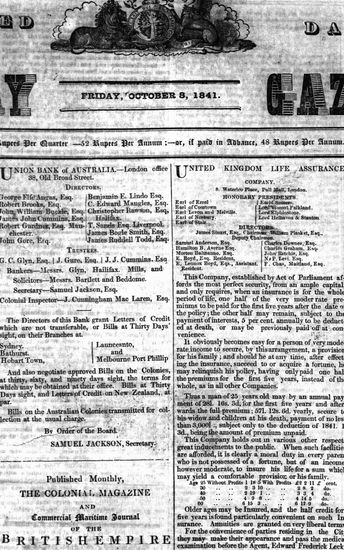 ED
DA
Y
GAZ
FRIDAY, OCTOBER 8, 1841.
Rupees Per Quarter —52 Rupees Per Annum;—or, if paid in Advance, 48 Rupees Per Annum.
UNION BANK OF AUSTRALIA.—London office
38, Old Broad Street.
DIRECTORS.
George Fife Angas, Esq.
Benjamin E. Lindo Esq.
Robert Brooks, Esq.
C. Edward Mangles, Esq.
John William Buckle, Esq.
Christopher Rawson, Esq.
James John Cummins, Esq.
Halifax.
Robert Gardner, Esq. Man-
T. Sands Esq. Liverpool.
chester.
James Bogle Smith, Esq.
John Gore, Esq.
James Ruddell Todd, Esq.
TRUSTEES.
G. C. Glyn, Esq. | J. Gore, Esq. | J. J. Cummins, Esq.
Bankers—Messrs. Glyn, Hallifax, Mills, and
Solicitors—Messrs. Bartlett and Beddome.
Secretary—Samuel Jackson, Esq.
Colonial Inspector—J. Cunningham Mac Laren, Esq.
The Directors of this Bank grant Letters of Credit
which are not transferable, or Bills at Thirty Days'
Sight, on their Branches at.
Sydney,
Launceston,
Bathurst.
and
Hobart Town,
Melbourne Port Phillip
And also negotiate approved Bills on the Colonies,
at thirty, sixty, and ninety days sight, the terms for
which may be obtained at their office. Bills at Thirty
Days sight, and Letters of Credit on New Zealand, at
par.
Bills on the Australian Colonies transmitted for col-
lection at the usual charge.
By Order of the Board.
SAMUEL JACKSON, Secretary.
Published Monthly,
THE COLONIAL MAGAZINE
AND
Commercial Maritime Journal
OF THE
BRITISH EMPIRE
UNITED KINGDOM LIFE ASSURANCE
COMPANY.
8, Waterloo Place, Pall Mall, London.
HONORARY PRESIDENTS.
Earl of Errol
Earl Somers.
Earl of Courtown
Lord Viscount Falkland
Earl Leven and Melville.
Lord Elphinstone
Earl of Norbury
Lord Belhaven & Stenton
Earl of Stair
DIRECTORS.
James Stuart, Esq., Chairman. William Plasket, Esq.,
Deputy Chairman.
Samuel Anderson, Esq.
Charles Downes, Esq.
Hamilton B. Avarne Esq.
Charles Graham, Esq.
Morton Balmanno, Esq.
John Ritchie, Esq.
E. Boyd, Esq. Resident,
N. P. Levi, Esq.
E. Lennox Boyd, Esq. Assistant Resident.
This Company, established by Act of Parliament af-
fords the most perfect security, from an ample capital
and only requires, when an insurance is for the whole
period of life, one half of the very moder rate pre-
miums to be paid for the first five years after the date of
the policy; the other half may remain, subject to the
payment of interests, 5 per cent. annually to be deduct-
ed at death, or may be previously paid of at con-
venience.
It obviously becomes easy for a person of very mode
rate income to secure, by this arrangement, a provision
for his family; and should he at any time, after effect-
ing the insurance, succeed to or acquire a fortune, he
may relinquish his policy, having only paid one half
the premiums for the first five years, instead of the
whole, as in all other Companies.
Thus a man of 25 years old may by an annual pay-
ment of 28l. 16s. 3d, for the first five years and after-
wards the full premium; 57l. 12s. 6d. yearly, secure to
his widow and children at his death, payment of no less
than 3,000l., subject only to the deduction of 144l. 1s.
3d., being the amount of premiums unpaid.
This Company holds out in various other respects
great inducements to the public. When such facilities
are afforded, it is clearly a moral duty in every parent
who is not possessed of a fortune, but of an income
however moderate, to insure his life for a sum which
may yield a comfortable provision for his family.
Older ages may be Insured, and the half credit for
five years is found particularly convenient on such In-
surance. Annuities are granted on very liberal terms
For the convenience of parties residing in the City,
they may make their appearance and pass the medical
examination before the Agent, Edward Frederick Leeks,